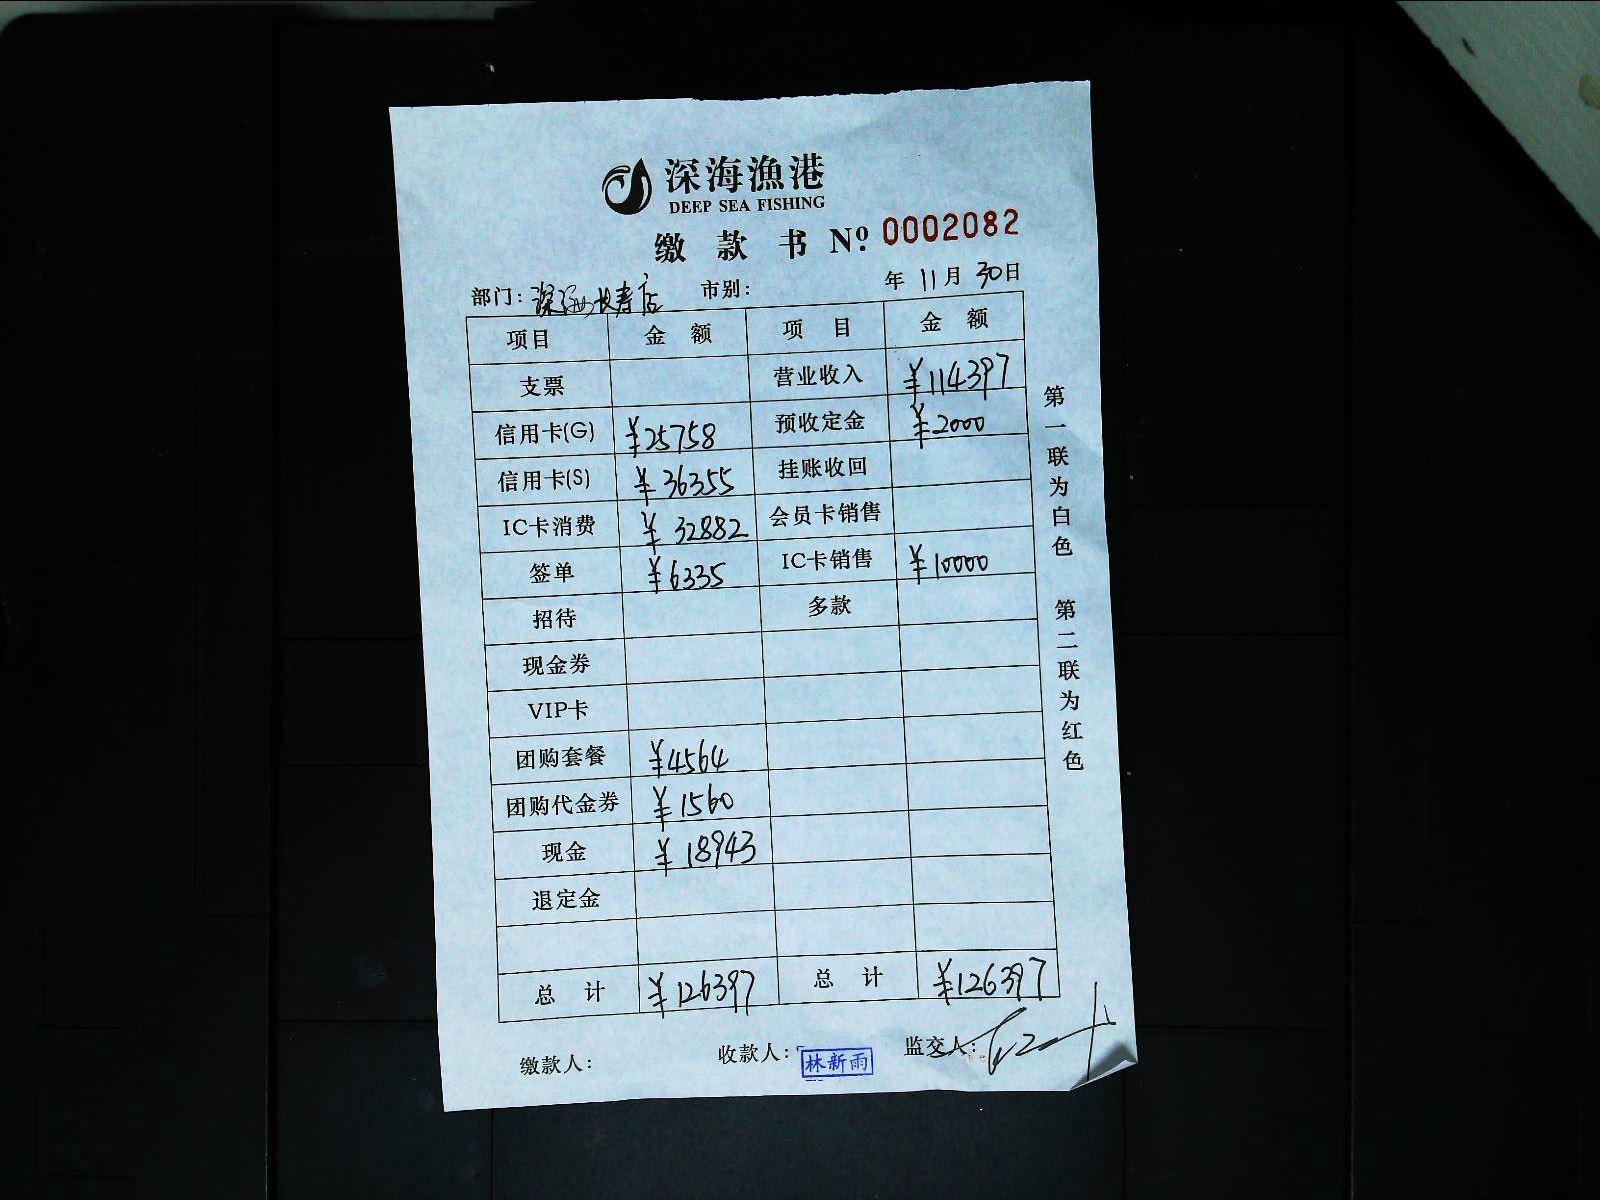 深海漁港
DEEP SEA FISHING
缴款书 Nº 0002082
部门: 深海长寿店 市别: 年 11月 30日
项目 金额 项目 金额
支票 营业收入 ¥114397
信用卡(G) ¥25758 预收定金 ¥2000
信用卡(S) ¥36355 挂账收回
IC卡消费 ¥32882 会员卡销售
签单 ¥6335 IC卡销售 ¥10000
招待 多款
现金券
VIP卡
团购套餐 ¥4564
团购代金券 ¥1560
现金 ¥18943
退定金
总计 ¥126397 总计 ¥126397
缴款人: 收款人: 林新雨 监交人:
第一联为白色 第二联为红色